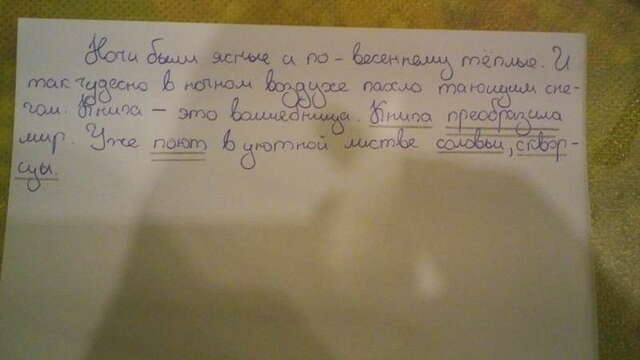 Ночи были ясные и по-весеннему тёплые. И
так чудесно в ночном воздухе пахло тающим сне-
гом. Книга – это волшебница. Книга преобразила
мир. Уже поют в уютной листве соловьи, сквор-
цы.